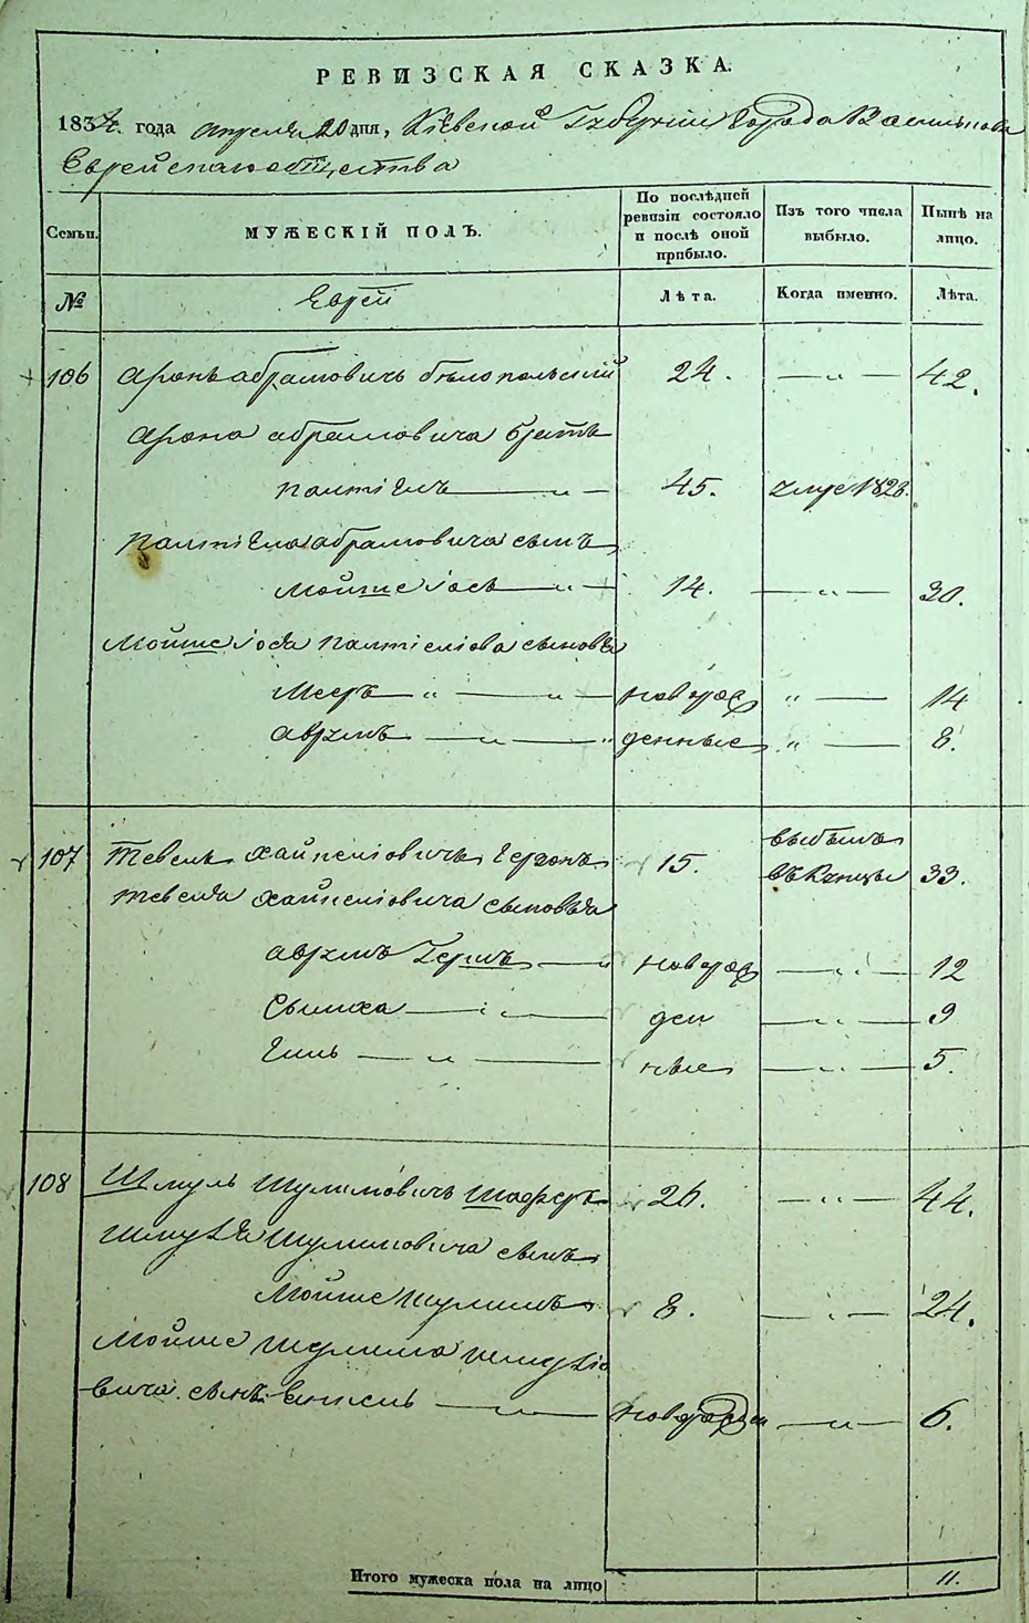 РЕВИЗСКАЯ СКАЗКА.
1834. года апреля 20 дня, Кіевской Губерніи Города Василькова
Еврейскаго общества
Семьи. МУЖЕСКІЙ ПОЛЪ. По послѣдней ревизіи состояло и послѣ оной прибыло. Изъ того числа выбыло. Нынѣ на лицо.
№ Еврей Лѣта. Когда именно. Лѣта.
106 Аронъ Абрамовичъ Бѣлопольскій 24. — „ — 42.
Арона Абрамовича братъ
Палтіель — „ — 45. умре 1823.
Палтіела Абрамовича сынъ
Мойше Іось — „ — 14. — „ — 30.
Мойше Іося Палтіеліова сыновья
Мееръ — „ — „ — новорож „ — 14
Аврумъ — „ — „ денные „ — 8.
107 Тевель Хайкеліовичъ 15. выбылъ въ Купцы 33.
Тевеля Хайкеліовича сыновья
Аврумъ Гершъ — „ новорож — „ — 12
Сымха — „ — ден — „ — 9
— „ — ные — „ — 5.
108 Шмуль Шулимовичъ Шаферъ 26. — „ — 44.
Шмуля Шулимовича сынъ
Мойше Шулимъ 8. — „ — 24.
Мойше Шулима Шмуліо
вича сынъ — „ — новорожден — „ — 6.
Итого мужеска пола на лицо 11.